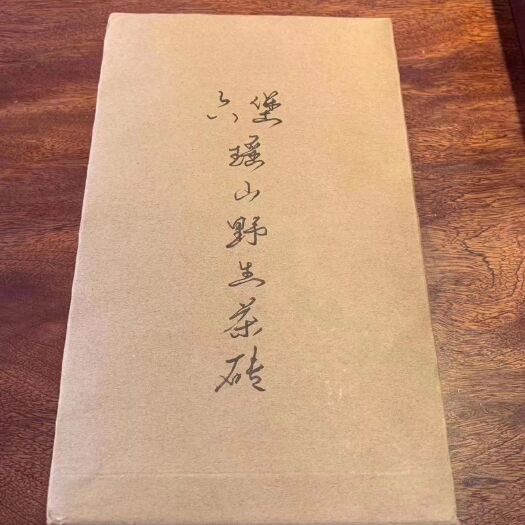 六堡
瑶山野生茶砖